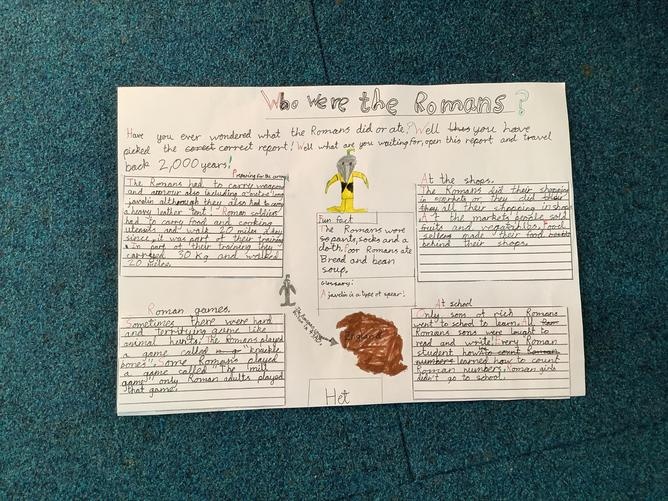 Who Were the Romans?
Have you ever wondered what the Romans did or ate? Well you have
picked the correct report! Well what are you waiting for, open this report and travel
back 2,000 years!
Preparing for the army
The Romans had to carry weapons
and armour also including a metre long
javelin although they also had to carry
a heavy leather tent! Roman soldiers
had to carry food and cooking
utensils and walk 20 miles a day
since it was part of their training
in part of their training they
carryed 30 Kg and walked
20 miles.
Roman games.
Sometimes there were hard
and terrifying game like
animal hunts. The Romans played
a game called "knuckle
bones". Some Romans played
a game called "The mill
game" only Roman adults played
that game.
Fun fact
The Romans wore
no pants, socks and a
cloth. Poor Romans ate
Bread and bean
soup.
Glossary:
A javelin is a type of spear!
The Romans
England
Het
At the shops.
The Romans did their shopping
in markets or they did
they all their shopping in shops
At the markets people sold
fruits and vegatables. Food
sellers made their food
behind their shops.
At school
Only sons of rich Romans
went to school to learn. All
Romans sons were tought to
read and write! Every Roman
student how to count Roman
numbers learned how to count
Roman numbers. Roman girls
didn't go to school.